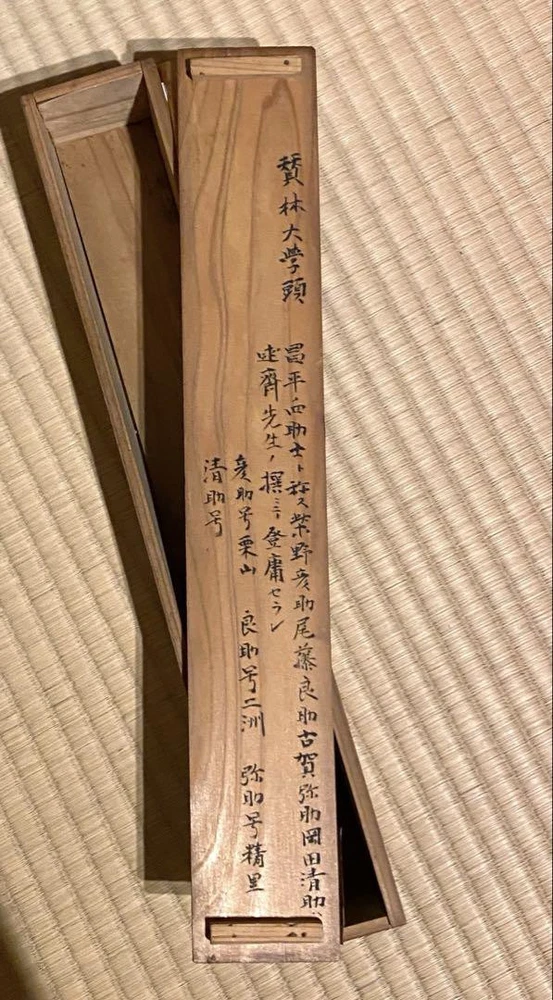 賛林大學頭
昌平四助士ト称ス柴野彦助尾藤良助古賀弥助岡田清助
述齊先生ノ撰ミニ登庸セラレ
彦助号栗山 良助号二洲 弥助号精里
清助号